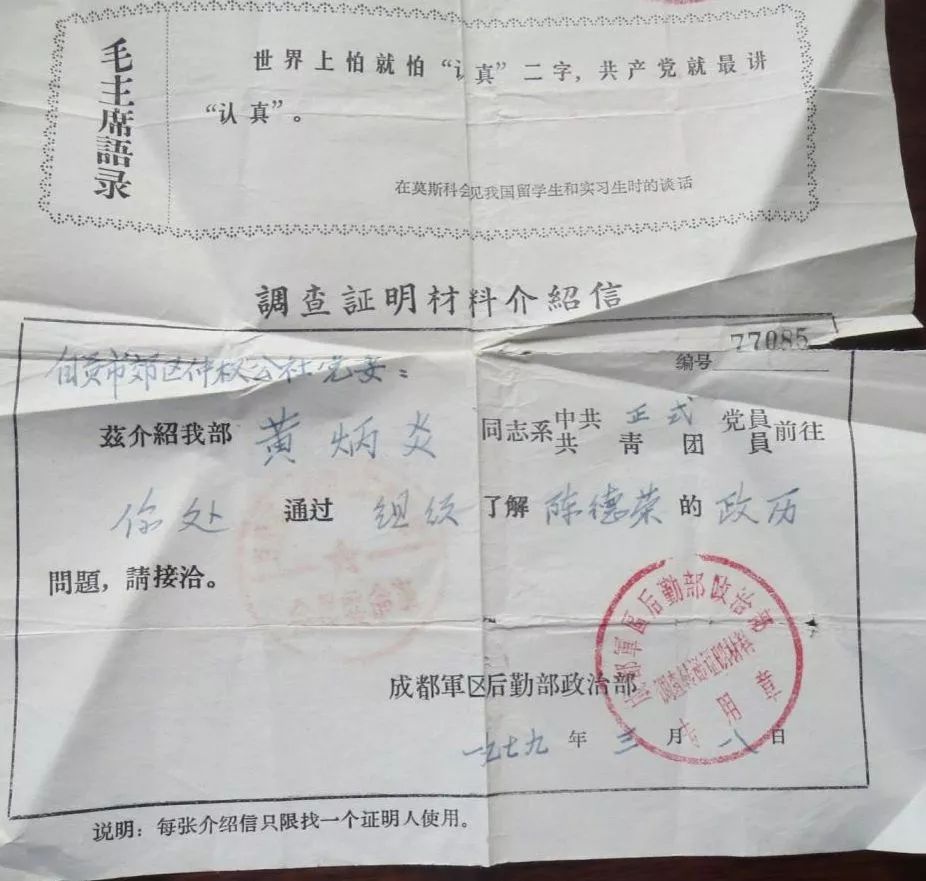 毛主席語录
世界上怕就怕“认真”二字，共产党就最讲
“认真”。
在莫斯科会见我国留学生和实习生时的谈话
調查証明材料介紹信
编号 77085
自贡市郊区仲权公社党委：
茲介紹我部 黄炳炎 同志系中共 正式 党員前往
共青团員
你处 通过 组织 了解 陈德荣 的 政历
問題，請接洽。
成都軍区后勤部政治部
一九七九年三月一八日
成都軍区后勤部政治部
专用章
说明：每张介绍信只限找一个证明人使用。